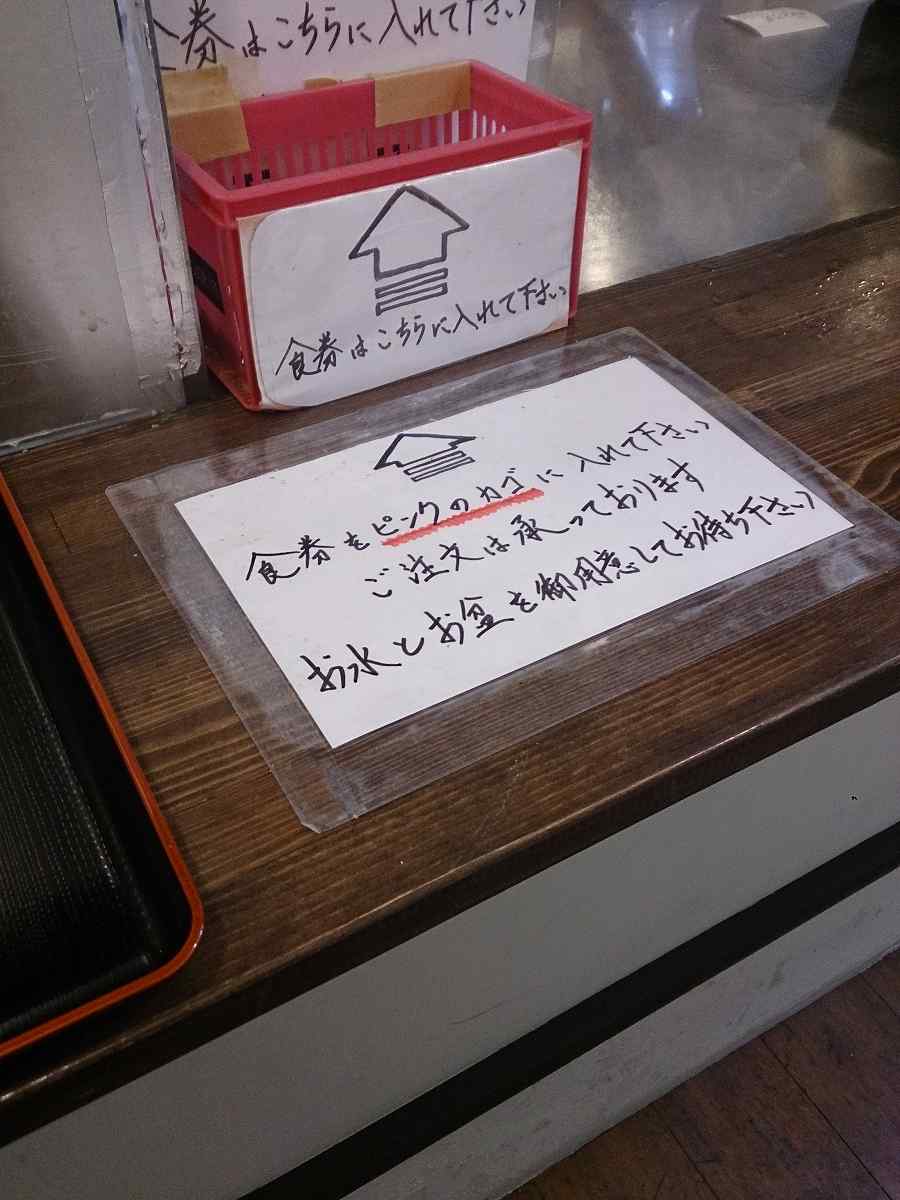 食券はこちらに入れて下さい
食券はこちらに入れて下さい
食券をピンクのカゴに入れて下さい
ご注文は承っております
お水とお盆を御用意してお待ち下さい